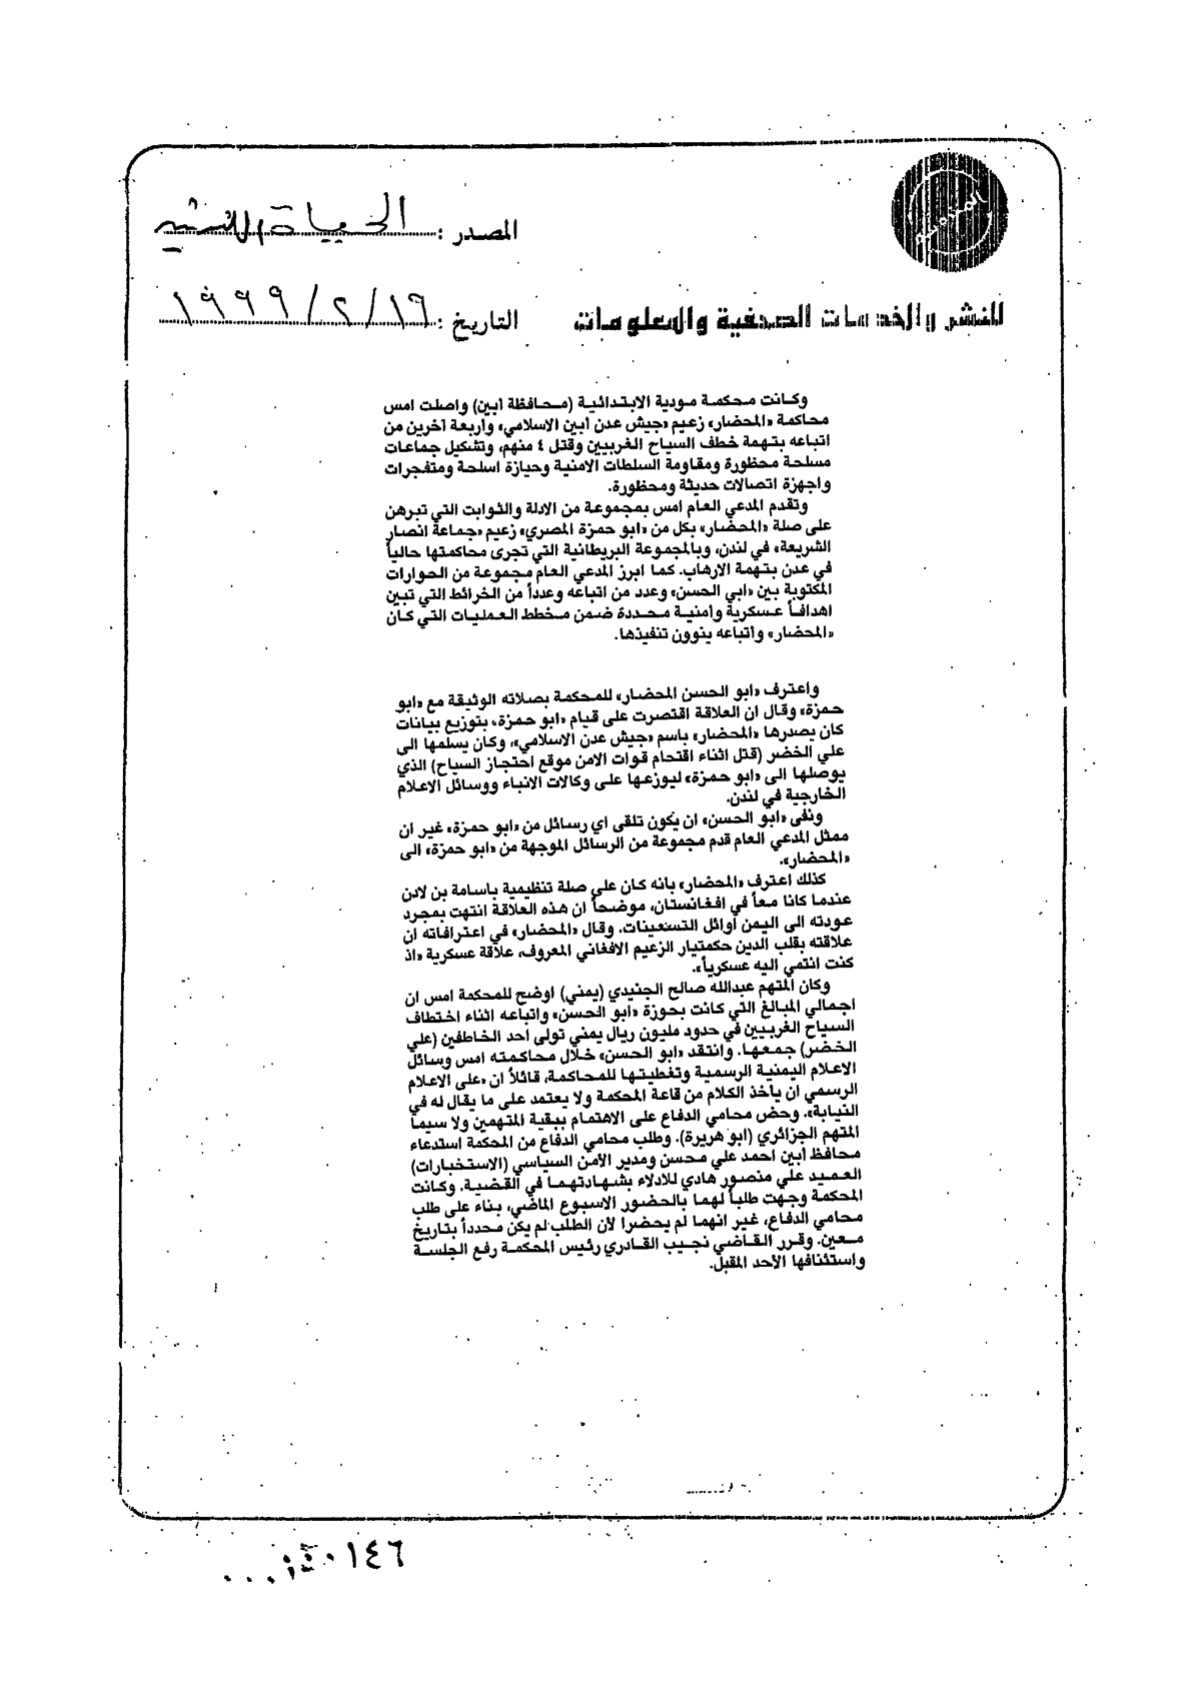 المصدر : الحياة اللندنية
للنشر والخدمات الصحفية والمعلومات
التاريخ : ١٦/٢/١٩٩٩
وكانت محكمة مودية الابتدائية (محافظة ابين) واصلت امس
محاكمة «المحضار» زعيم «جيش عدن أبين الاسلامي» وأربعة آخرين من
اتباعه بتهمة خطف السياح الغربيين وقتل ٤ منهم، وتشكيل جماعات
مسلحة محظورة ومقاومة السلطات الامنية وحيازة اسلحة ومتفجرات
واجهزة اتصالات حديثة ومحظورة.
وتقدم المدعي العام امس بمجموعة من الادلة والثوابت التي تبرهن
على صلة «المحضار» بكل من «ابو حمزة المصري» زعيم «جماعة انصار
الشريعة» في لندن، وبالمجموعة البريطانية التي تجرى محاكمتها حالياً
في عدن بتهمة الارهاب. كما ابرز المدعي العام مجموعة من الحوارات
المكتوبة بين «ابي الحسن» وعدد من اتباعه وعدداً من الخرائط التي تبين
اهدافاً عسكرية وامنية محددة ضمن مخطط العمليات التي كان
«المحضار» واتباعه ينوون تنفيذها.
واعترف «ابو الحسن المحضار» للمحكمة بصلاته الوثيقة مع «ابو
حمزة» وقال ان العلاقة اقتصرت على قيام «ابو حمزة» بتوزيع بيانات
كان يصدرها «المحضار» باسم «جيش عدن الاسلامي»، وكان يسلمها الى
علي الخضر (قتل اثناء اقتحام قوات الامن موقع احتجاز السياح) الذي
يوصلها الى «ابو حمزة» ليوزعها على وكالات الانباء ووسائل الاعلام
الخارجية في لندن.
ونفى «ابو الحسن» ان يكون تلقى اي رسائل من «ابو حمزة» غير ان
ممثل المدعي العام قدم مجموعة من الرسائل الموجهة من «ابو حمزة» الى
«المحضار».
كذلك اعترف «المحضار» بانه كان على صلة تنظيمية باسامة بن لادن
عندما كانا معاً في افغانستان، موضحاً ان هذه العلاقة انتهت بمجرد
عودته الى اليمن أوائل التسعينات. وقال «المحضار» في اعترافاته ان
علاقته بقلب الدين حكمتيار الزعيم الافغاني المعروف، علاقة عسكرية «اذ
كنت انتمي اليه عسكرياً».
وكان المتهم عبدالله صالح الجنيدي (يمني) اوضح للمحكمة امس ان
اجمالي المبالغ التي كانت بحوزة «ابو الحسن» واتباعه اثناء اختطاف
السياح الغربيين في حدود مليون ريال يمني تولى أحد الخاطفين (علي
الخضر) جمعها. وانتقد «ابو الحسن» خلال محاكمته امس وسائل
الاعلام اليمنية الرسمية وتغطيتها للمحاكمة، قائلاً ان «على الاعلام
الرسمي ان يأخذ الكلام من قاعة المحكمة ولا يعتمد على ما يقال له في
النيابة». وحض محامي الدفاع على الاهتمام ببقية المتهمين ولا سيما
المتهم الجزائري (ابو هريرة). وطلب محامي الدفاع من المحكمة استدعاء
محافظ أبين احمد علي محسن ومدير الأمن السياسي (الاستخبارات)
العميد علي منصور هادي للادلاء بشهادتهما في القضية. وكانت
المحكمة وجهت طلباً لهما بالحضور الاسبوع الماضي، بناء على طلب
محامي الدفاع، غير انهما لم يحضرا لأن الطلب لم يكن محدداً بتاريخ
معين. وقرر القاضي نجيب القادري رئيس المحكمة رفع الجلسة
واستئنافها الأحد المقبل.